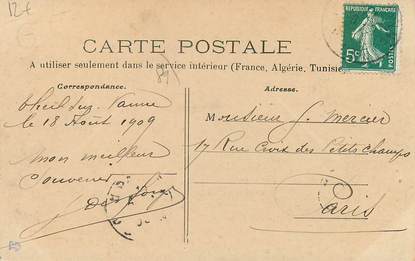 12f
RÉPUBLIQUE FRANÇAISE
5c
POSTES
CARTE POSTALE
A utiliser seulement dans le service intérieur (France, Algérie, Tunisie)
Correspondance.
Adresse.
Theil sur Vanne
le 18 Août 1909
Mon meilleur
Souvenir
Monsieur G. Mercier
17 Rue Croix des Petits Champs
Paris